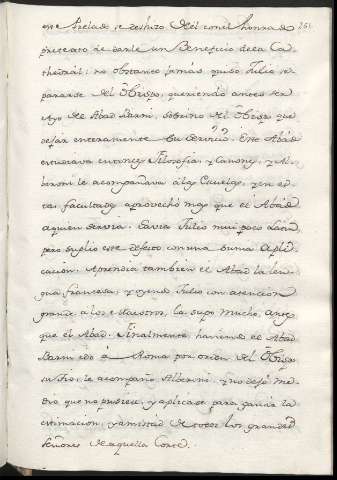 este Prelado se deshizo del con el honrado
pretexto de darle un Beneficio de la Ca-
thedral; no obstante jamás quiso Julio se-
pararse del Obispo, queriendo antes ser
Ayo del Abad Barni, sobrino del Obispo que
dejar enteramente su servicio. Este Abad
estudiava entonces Filosofia y Canones, y Al-
beroni le acompañava a las Escuelas, y en es-
tas facultades aprovechó mas que el Abad
a quien servia. Savia Julio mui poco Latin,
pero suplio este defecto con una buena apli-
cacion. Aprendia tambien el Abad la len-
gua francesa, y oyendo Julio con atencion
grande a los Maestros, la supo mucho antes
que el Abad. Finalmente, haviendo el Abad
Barni ido à Roma por orden del Obispo
su tio, le acompañó Alberoni, y no dejó me-
dio que no pusiese, y aplicase para ganar la
estimacion, y amistad de todos los grandes
Señores de aquella Corte.